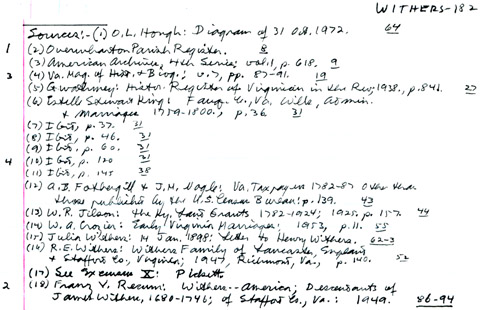 WITHERS-182
Sources:- (1) O.L. Hough: Diagram of 31 Oct. 1972. 64
1 (2) Overwharton Parish Register. 8
(3) American Archives, 4th Series: vol. 1, p. 618. 9
3 (4) Va. Mag. of Hist. & Biog.; v. 7, pp. 87-91. 19
(5) Gwathmey: Histor. Register of Virginians in the Rev; 1938., p. 841. 27
(6) Estelle Stewart King: Fauq. Co., Va. Wills, Admin. & Marriages 1759-1800., p. 36 31
(7) I G W S, p. 37. 31
(8) I G W S, p. 46. 31
(9) I G W S, p. 60. 31
4 (10) I G W S, p. 120 31
(11) I G W S, p. 145 38
(12) A.B. Fothergill & J.M. Naugle: Va. Taxpayers 1782-87 Other than
those published by the U.S. Census Bureau: p. 139. 43
(13) W.R. Jilson: the Ky. Land Grants 1782-1924; 1925, p. 157. 44
(14) W.A. Crozier: Early Virginia Marriages; 1953, p. 11. 55
(15) Julia Withers: 14 Jan. 1898; Letter to Henry Withers. 62-3
(16) R.E. Withers: Withers Family of Lancaster, England
& Stafford Co., Virginia; 1947, Richmond, Va., p. 140. 52
(17) See Excursus X: Pickett.
2 (18) Franz V. Recum: Withers--America; Descendants of
James Withers, 1680-1746; of Stafford Co., Va.: 1949. 86-94